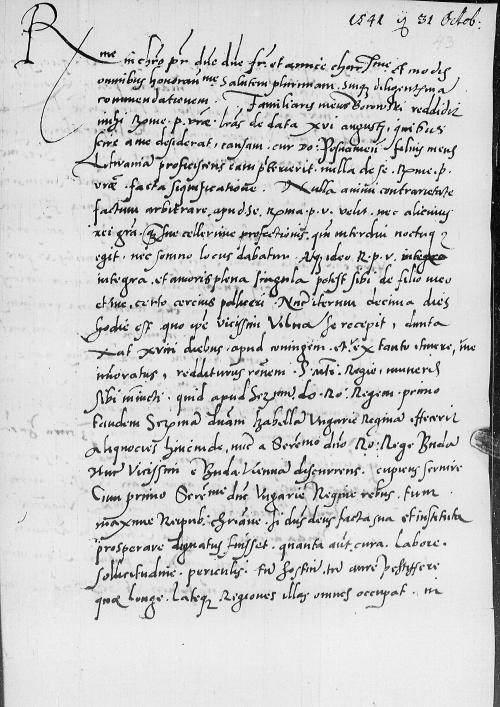 1541 31 Octob:
43
Rme in chro pr dne dne fr et amice charme et modis
omnibus honoranme Salutem plurimam. Suiq diligentem
commendationem. Familiaris meus Borowski reddidit
mihi Rme. p. vrae. lras de data XVI augusti, quibus
scire a me desiderat, causam. cur Do: Posnanien. filius meus
Lituaniam proficiscens eam preterierit. nulla de se. Rme. p.
vrae. facta significatione. Nulla animi contrarietate
factum arbitrare, apud se, Rma. p. v. velit. nec alicuius
rei gra. sue celerime profectionis, qn interdiu noctuq
egit. nec somno locus dabatur. Atq ideo R. p. v.
integra. et amoris plena singula potest sibi de filio meo
et me, certo certius polliceri. Nunc iterum decima dies
hodie est. quo ipse vicissim Vilna se recepit,
XVIII diebus. apud coniugem. et ex tanto itinere, me
rediturus ronem. S. Regie, muneris
sibi iniuncti. quid apud Sermu. do. Ro. Regem. primo
tandem Sermam dnam Izabella Ungarie Regina effecerit
Aliquocies hincinde, nunc a Serenmo dno Ro: Rege Budam
Nunc Vicissim e Buda Vienna discurrens. cupiens servire
Cum primo Serme dne Ungarie Regine rebus. tum
maxime Reipub. chriane. si dus deus facta sua et instituta
prosperare dignatus fuisset. quanta aut. cura. Labore.
sollicitudine. periculis. tu hostiu. tu aure pestiffere
quae longe. Lateq. Regiones illas omnes occupat. in